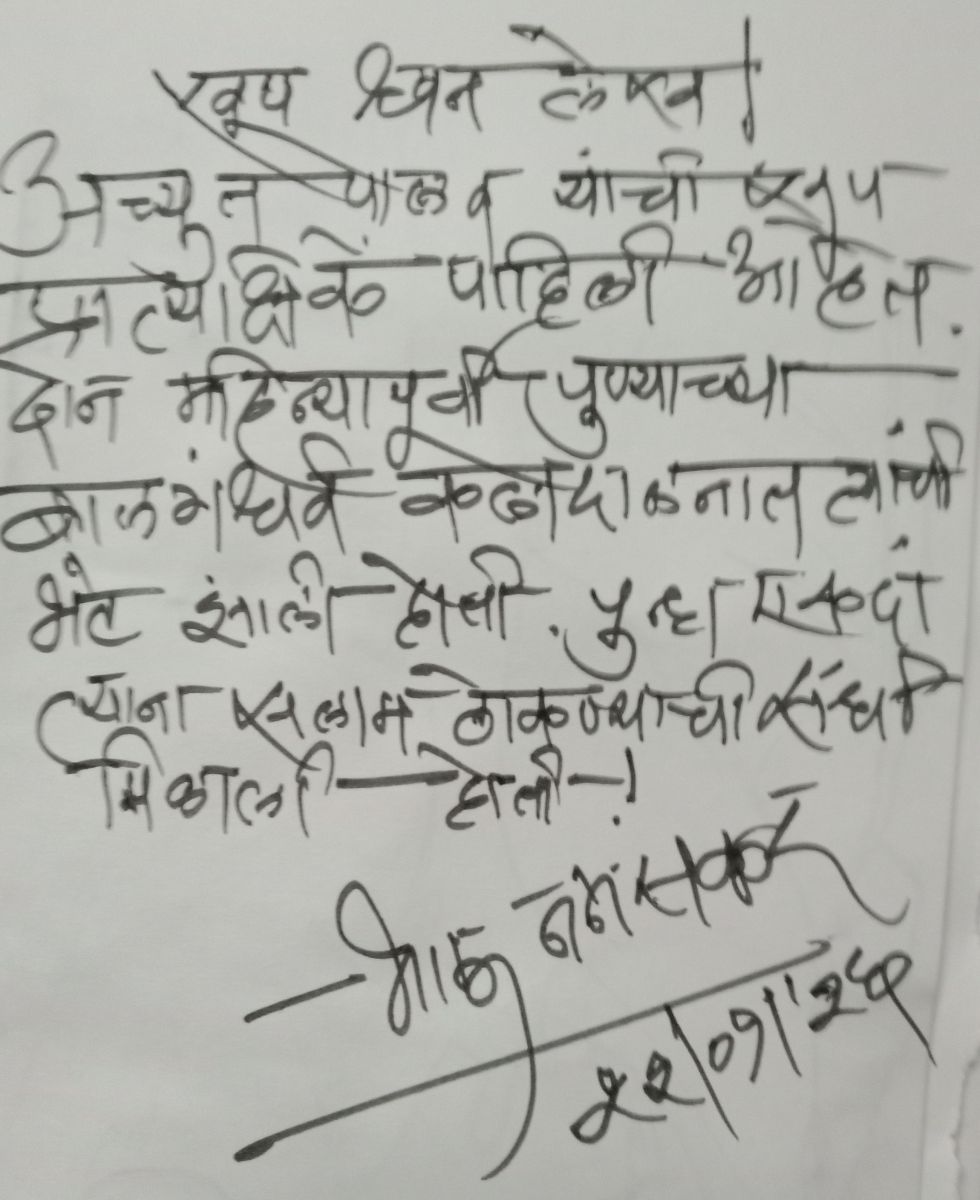 खूप छान लेख!
अच्युत पालव यांची खूप
प्रात्यक्षिकें पाहिली आहेत.
दोन महिन्यापूर्वी पुण्याच्या
बालगंधर्व कलादालनात त्यांची
भेट झाली होती. पुन्हा एकदां
त्यांना सलाम ठोकण्याची संधी
मिळाली होती!
२२/०१/'२६